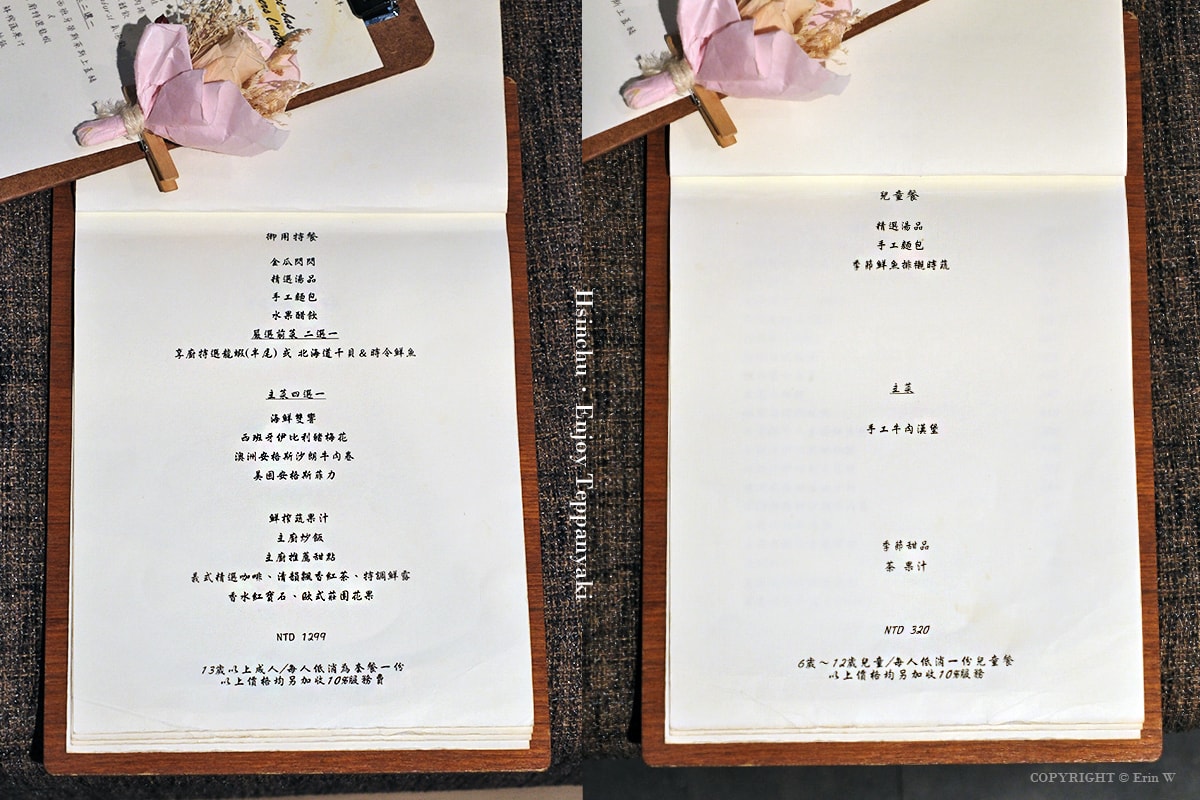 御用特餐
金瓜閃閃
精選湯品
手工麵包
水果醋飲
嚴選前菜 二選一
享廚特選龍蝦(半尾) 或 北海道干貝&時令鮮魚
主菜四選一
海鮮雙響
西班牙伊比利豬梅花
澳洲安格斯沙朗牛肉卷
美國安格斯菲力
鮮榨蔬果汁
主廚炒飯
主廚推薦甜點
義式精選咖啡、清韻飄香紅茶、特調鮮露
香水紅寶石、歐式莊園花果
NTD 1299
13歲以上成人/每人低消為套餐一份
以上價格均另加收10%服務費
Hsinchu · Enjoy Teppanyaki
兒童餐
精選湯品
手工麵包
季節鮮魚排襯時蔬
主菜
手工牛肉漢堡
季節甜品
茶 果汁
NTD 320
6歲~12歲兒童/每人低消一份兒童餐
以上價格均另加收10%服務
COPYRIGHT © Erin W